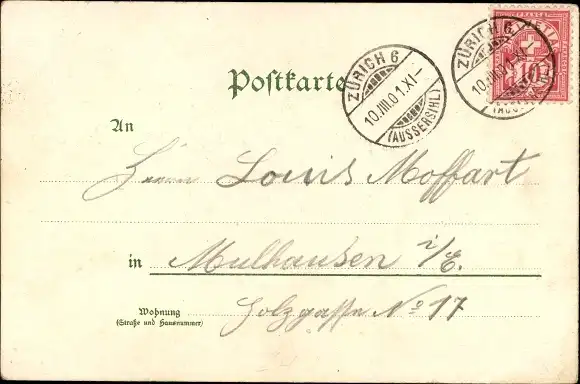 Postkarte
ZÜRICH 6
10.III.01.XI–
(AUSSERSIHL)
ZÜRICH 6
10.III.01.XI–
(AUSS
FRANCO
HELVETIA
10
An
Herrn Louis Moffart
in Mulhausen i/E.
Wohnung
(Straße und Hausnummer)
Holzgasse No 17